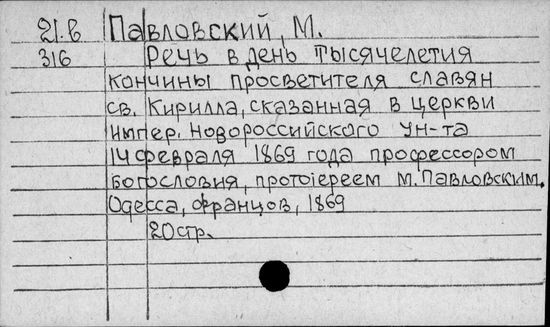 21.б Павловский, М.
316 Речь в день тысячелетия
кончины просветителя славян
св. Кирилла, сказанная в церкви
импер. Новороссийского ун-та
14 февраля 1869 года профессором
богословия, протоiереем М. Павловским.
Одесса, Францов, 1869
20 стр.